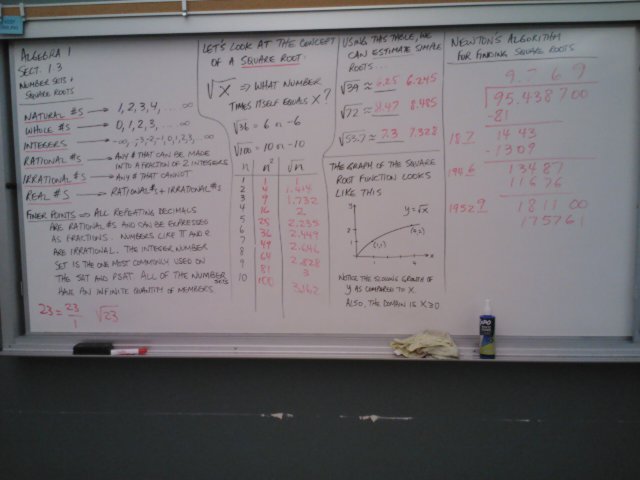 ALGEBRA 1
SECT. 1.3
NUMBER SETS &
SQUARE ROOTS
NATURAL #S → 1, 2, 3, 4, ... ∞
WHOLE #S → 0, 1, 2, 3, ... ∞
INTEGERS → -∞, ..., -3, -2, -1, 0, 1, 2, 3, ... ∞
RATIONAL #S → ANY # THAT CAN BE MADE
INTO A FRACTION OF 2 INTEGERS
IRRATIONAL #S → ANY # THAT CANNOT
REAL #S → RATIONAL #S + IRRATIONAL #S
FINER POINTS ⇒ ALL REPEATING DECIMALS
ARE RATIONAL #S AND CAN BE EXPRESSED
AS FRACTIONS. NUMBERS LIKE π AND e
ARE IRRATIONAL. THE INTEGER NUMBER
SET IS THE ONE MOST COMMONLY USED ON
THE SAT AND PSAT. ALL OF THE NUMBER SETS
HAVE AN INFINITE QUANTITY OF MEMBERS
23 = 23/1 √23
LET'S LOOK AT THE CONCEPT
OF A SQUARE ROOT:
√X ⇒ WHAT NUMBER
TIMES ITSELF EQUALS X?
√36 = 6 or -6
√100 = 10 or -10
n n² √n
1 1 1
2 4 1.414
3 9 1.732
4 16 2
5 25 2.235
6 36 2.449
7 49 2.646
8 64 2.828
9 81 3
10 100 3.162
USING THIS TABLE, WE
CAN ESTIMATE SIMPLE
ROOTS...
√39 ≈ 6.25 6.245
√72 ≈ 8.47 8.485
√53.7 ≈ 7.3 7.328
THE GRAPH OF THE SQUARE
ROOT FUNCTION LOOKS
LIKE THIS
y = √x
2
1
(1,1)
(4,2)
1 4 x
NOTICE THE SLOWING GROWTH OF
y AS COMPARED TO X.
ALSO, THE DOMAIN IS X≥0
NEWTON'S ALGORITHM
FOR FINDING SQUARE ROOTS
9.769
√95.438700
-81
187 1443
-1309
1946 13487
11676
19529 181100
175761
EXPO